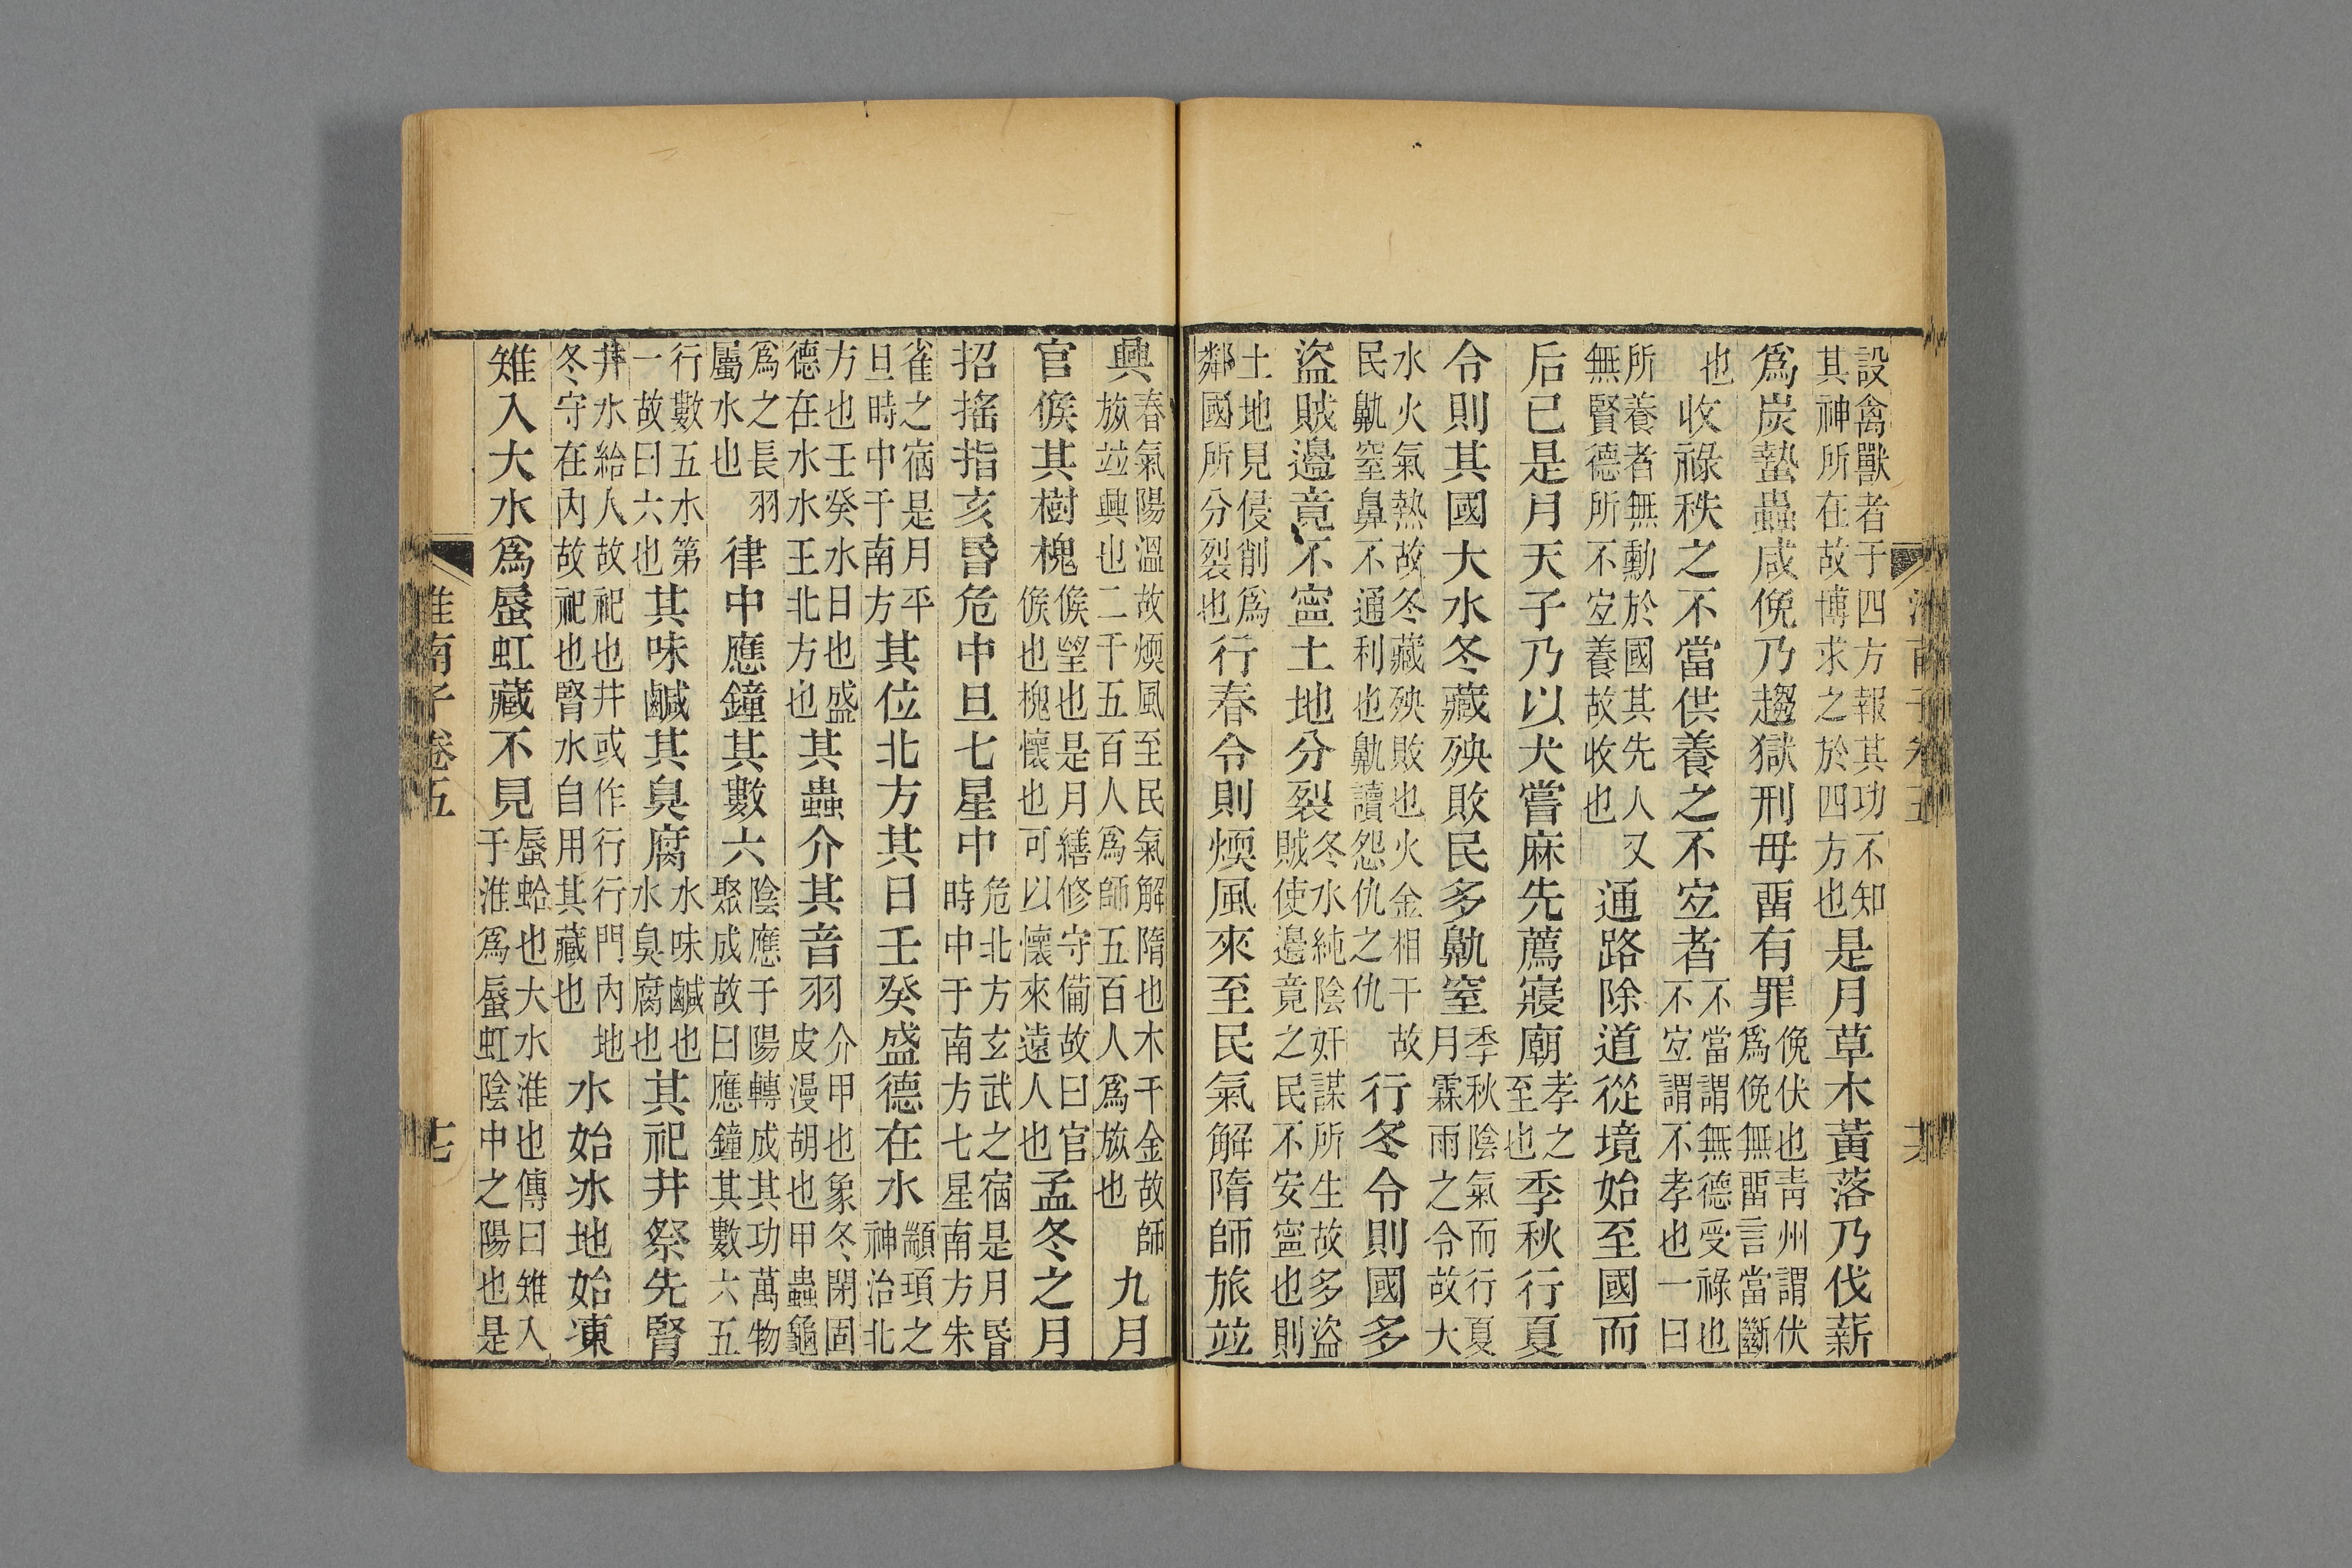 設禽獸者于四方報其功不知
其神所在故博求之於四方也
是月草木黃落乃伐薪
爲炭蟄蟲咸俛乃趨獄刑毋畱有罪
俛伏也靑州謂伏
爲俛無畱言當斷
也
收祿秩之不當供養之不宐者
不當謂無德受祿也
不宐謂不孝也一曰
所養者無勳於國其先人又
無賢德所不宐養故收也
通路除道從境始至國而
后已是月天子乃以犬嘗麻先薦寢廟
孝之
至也
季秋行夏
令則其國大水冬藏殃敗民多鼽窒
季秋陰氣而行夏
月霖雨之令故大
水火氣熱故冬藏殃敗也火金相干故
民鼽窒鼻不通利也鼽讀怨仇之仇
行冬令則國多
盜賊邊竟不寧土地分裂
冬水純陰奸謀所生故多盜
賊使邊竟之民不安寧也則
土地見侵削爲
鄰國所分裂也
行春令則煗風來至民氣解隋師旅竝
興
春氣陽溫故煗風至民氣解隋也木干金故師
旅竝興也二千五百人爲師五百人爲旅也
九月
官候其樹槐
候望也是月繕修守備故曰官
候也槐懷也可以懷來遠人也
孟冬之月
招搖指亥昏危中旦七星中
危北方玄武之宿是月昏
時中于南方七星南方朱
雀之宿是月平
旦時中于南方
其位北方其日壬癸盛德在水
顓頊之
神治北
方也壬癸水日也盛
德在水水王北方也
其蟲介其音羽
介甲也象冬閉固
皮漫胡也甲蟲龜
爲之長羽
屬水也
律中應鐘其數六
陰應于陽轉成其功萬物
聚成故曰應鐘其數六五
行數五水第
一故曰六也
其味鹹其臭腐
水味鹹也
水臭腐也
其祀井祭先腎
井水給人故祀也井或作行行門內地
冬守在內故祀也腎水自用其藏也
水始冰地始凍
雉入大水爲蜃虹藏不見
蜃蛤也大水淮也傳曰雉入
于淮爲蜃虹陰中之陽也是
淮南子卷五